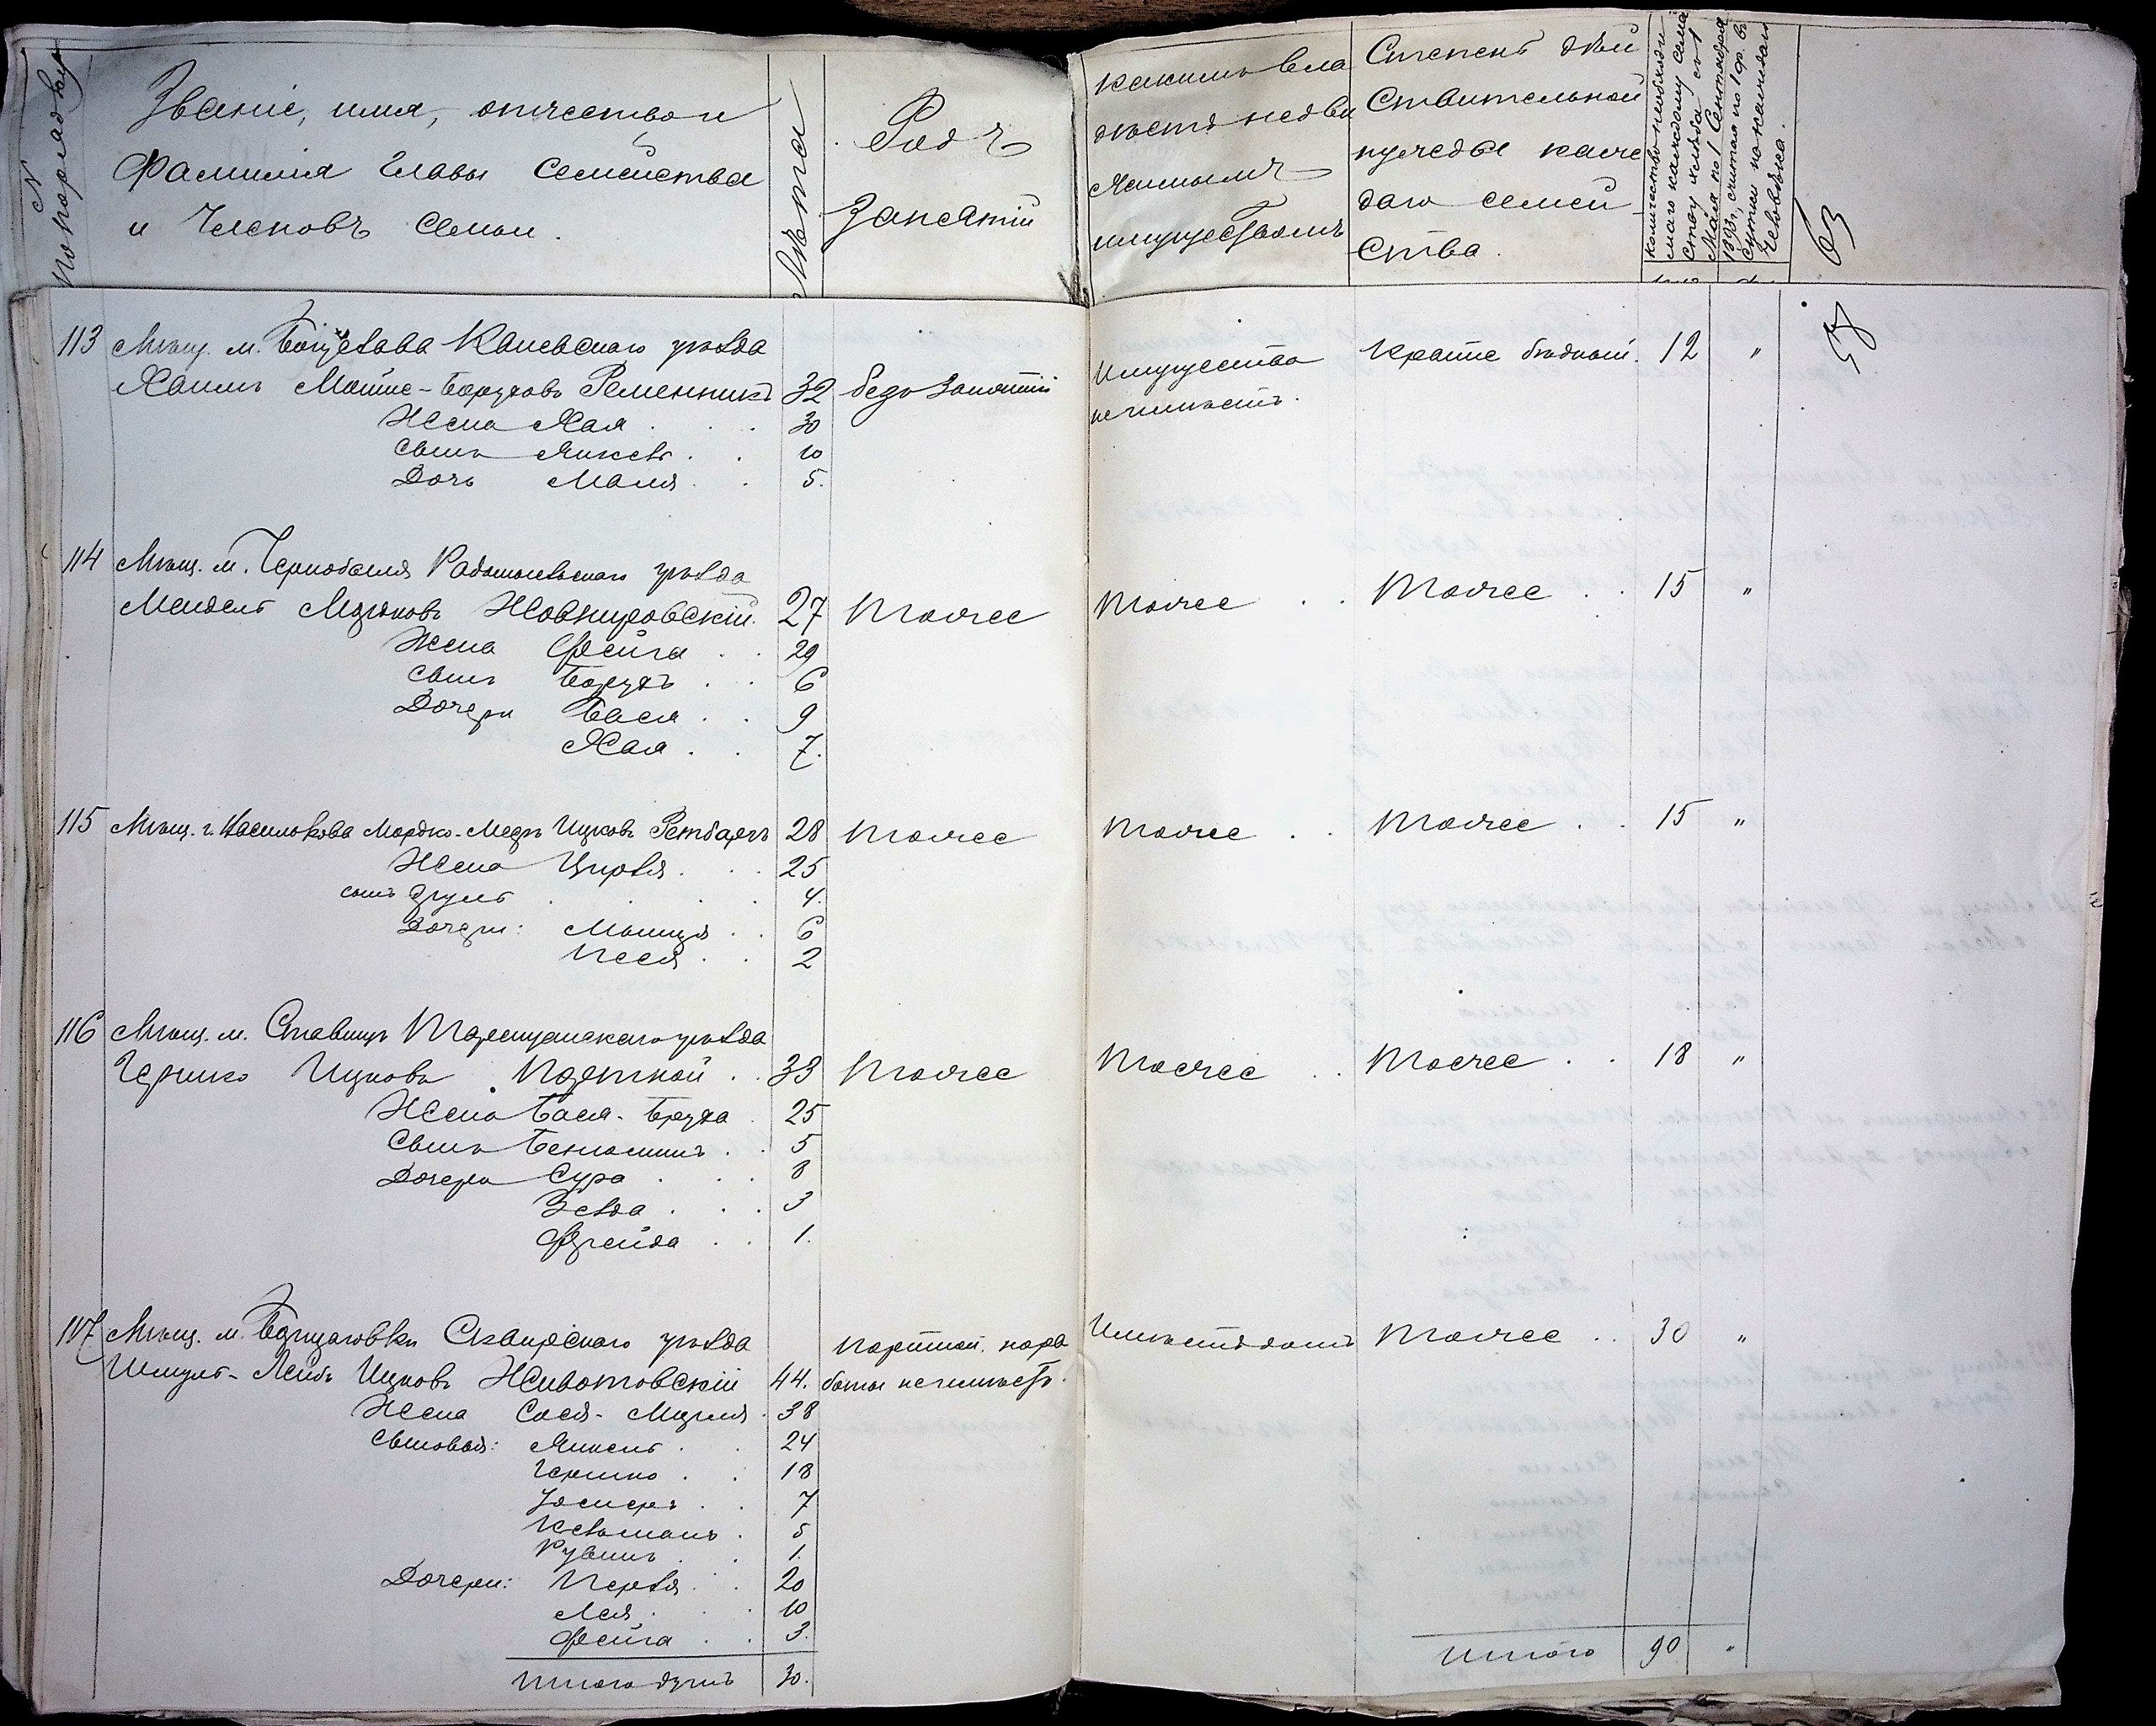 № по порядку
Званіе, имя, отчество и
фамилія Главы семейства
и Членовъ Семьи.
Лѣта
Родъ
Занятій
какимъ вла
дѣетъ недви
жимымъ
имуществомъ
Степень дѣй
ствительной
нужды каж
даго семей
ства.
количество необходи
маго каждому семей
ству хлѣба съ 1
Мая по 1 Сентября
1893 г. считая по 1 ф. въ
сутки на каждаго
человѣка.
63
58
113 Мѣщ. м. Богуслава Каневскаго уѣзда
Хаимъ Мойше-Боруховъ Ременникъ 32 безъ занятій Имущества не имѣетъ. Крайне бѣдный. 12 "
Жена Хая . . . 30
Сынъ Янкель . . 10
Дочь Маля . . 5.
114 Мѣщ. м. Чернобыля Радомысльскаго уѣзда
Мендель Мошковъ Жовнировскій. 27 Тоже Тоже . . Тоже . . 15 "
Жена Фейга . . 29
Сынъ Борухъ . . 6
Дочери Бася . . 9
Хая . . 7.
115 Мѣщ. г. Василькова Мордко-Мееръ Ицковъ Ретбаръ 28 Тоже Тоже . . Тоже . . 15 "
Жена Цирля . . . 25
сынъ Сруль . . . . 4.
Дочери: Маиця . . 6
Песя . . 2
116 Мѣщ. м. Ставищъ Таращанскаго уѣзда
Гершко Ицковъ Портной . . 33 Тоже Тоже . . Тоже . . 18 "
Жена Бася-Бруха . 25
Сынъ Беньоминъ . . 5
Дочери Сура . . . 8
Зельда . . . 3
Фрейда . . 1.
117 Мѣщ. м. Борщаговки Сквирскаго уѣзда
Шмуль-Лейбъ Ицковъ Животовскій 44. портной. рабо ты не имѣетъ. Имѣетъ домъ Тоже . . 30 "
Жена Сося- . 38
Сыновья: Янкель . . 24
Гершко . . 18
Іосифъ . . 7
Кельманъ . 5
Рувинъ . . 1.
Дочери: Перля . . 20
Лея . . . 10
Фейга . . 3.
Итого душъ 30.
Итого 90 "